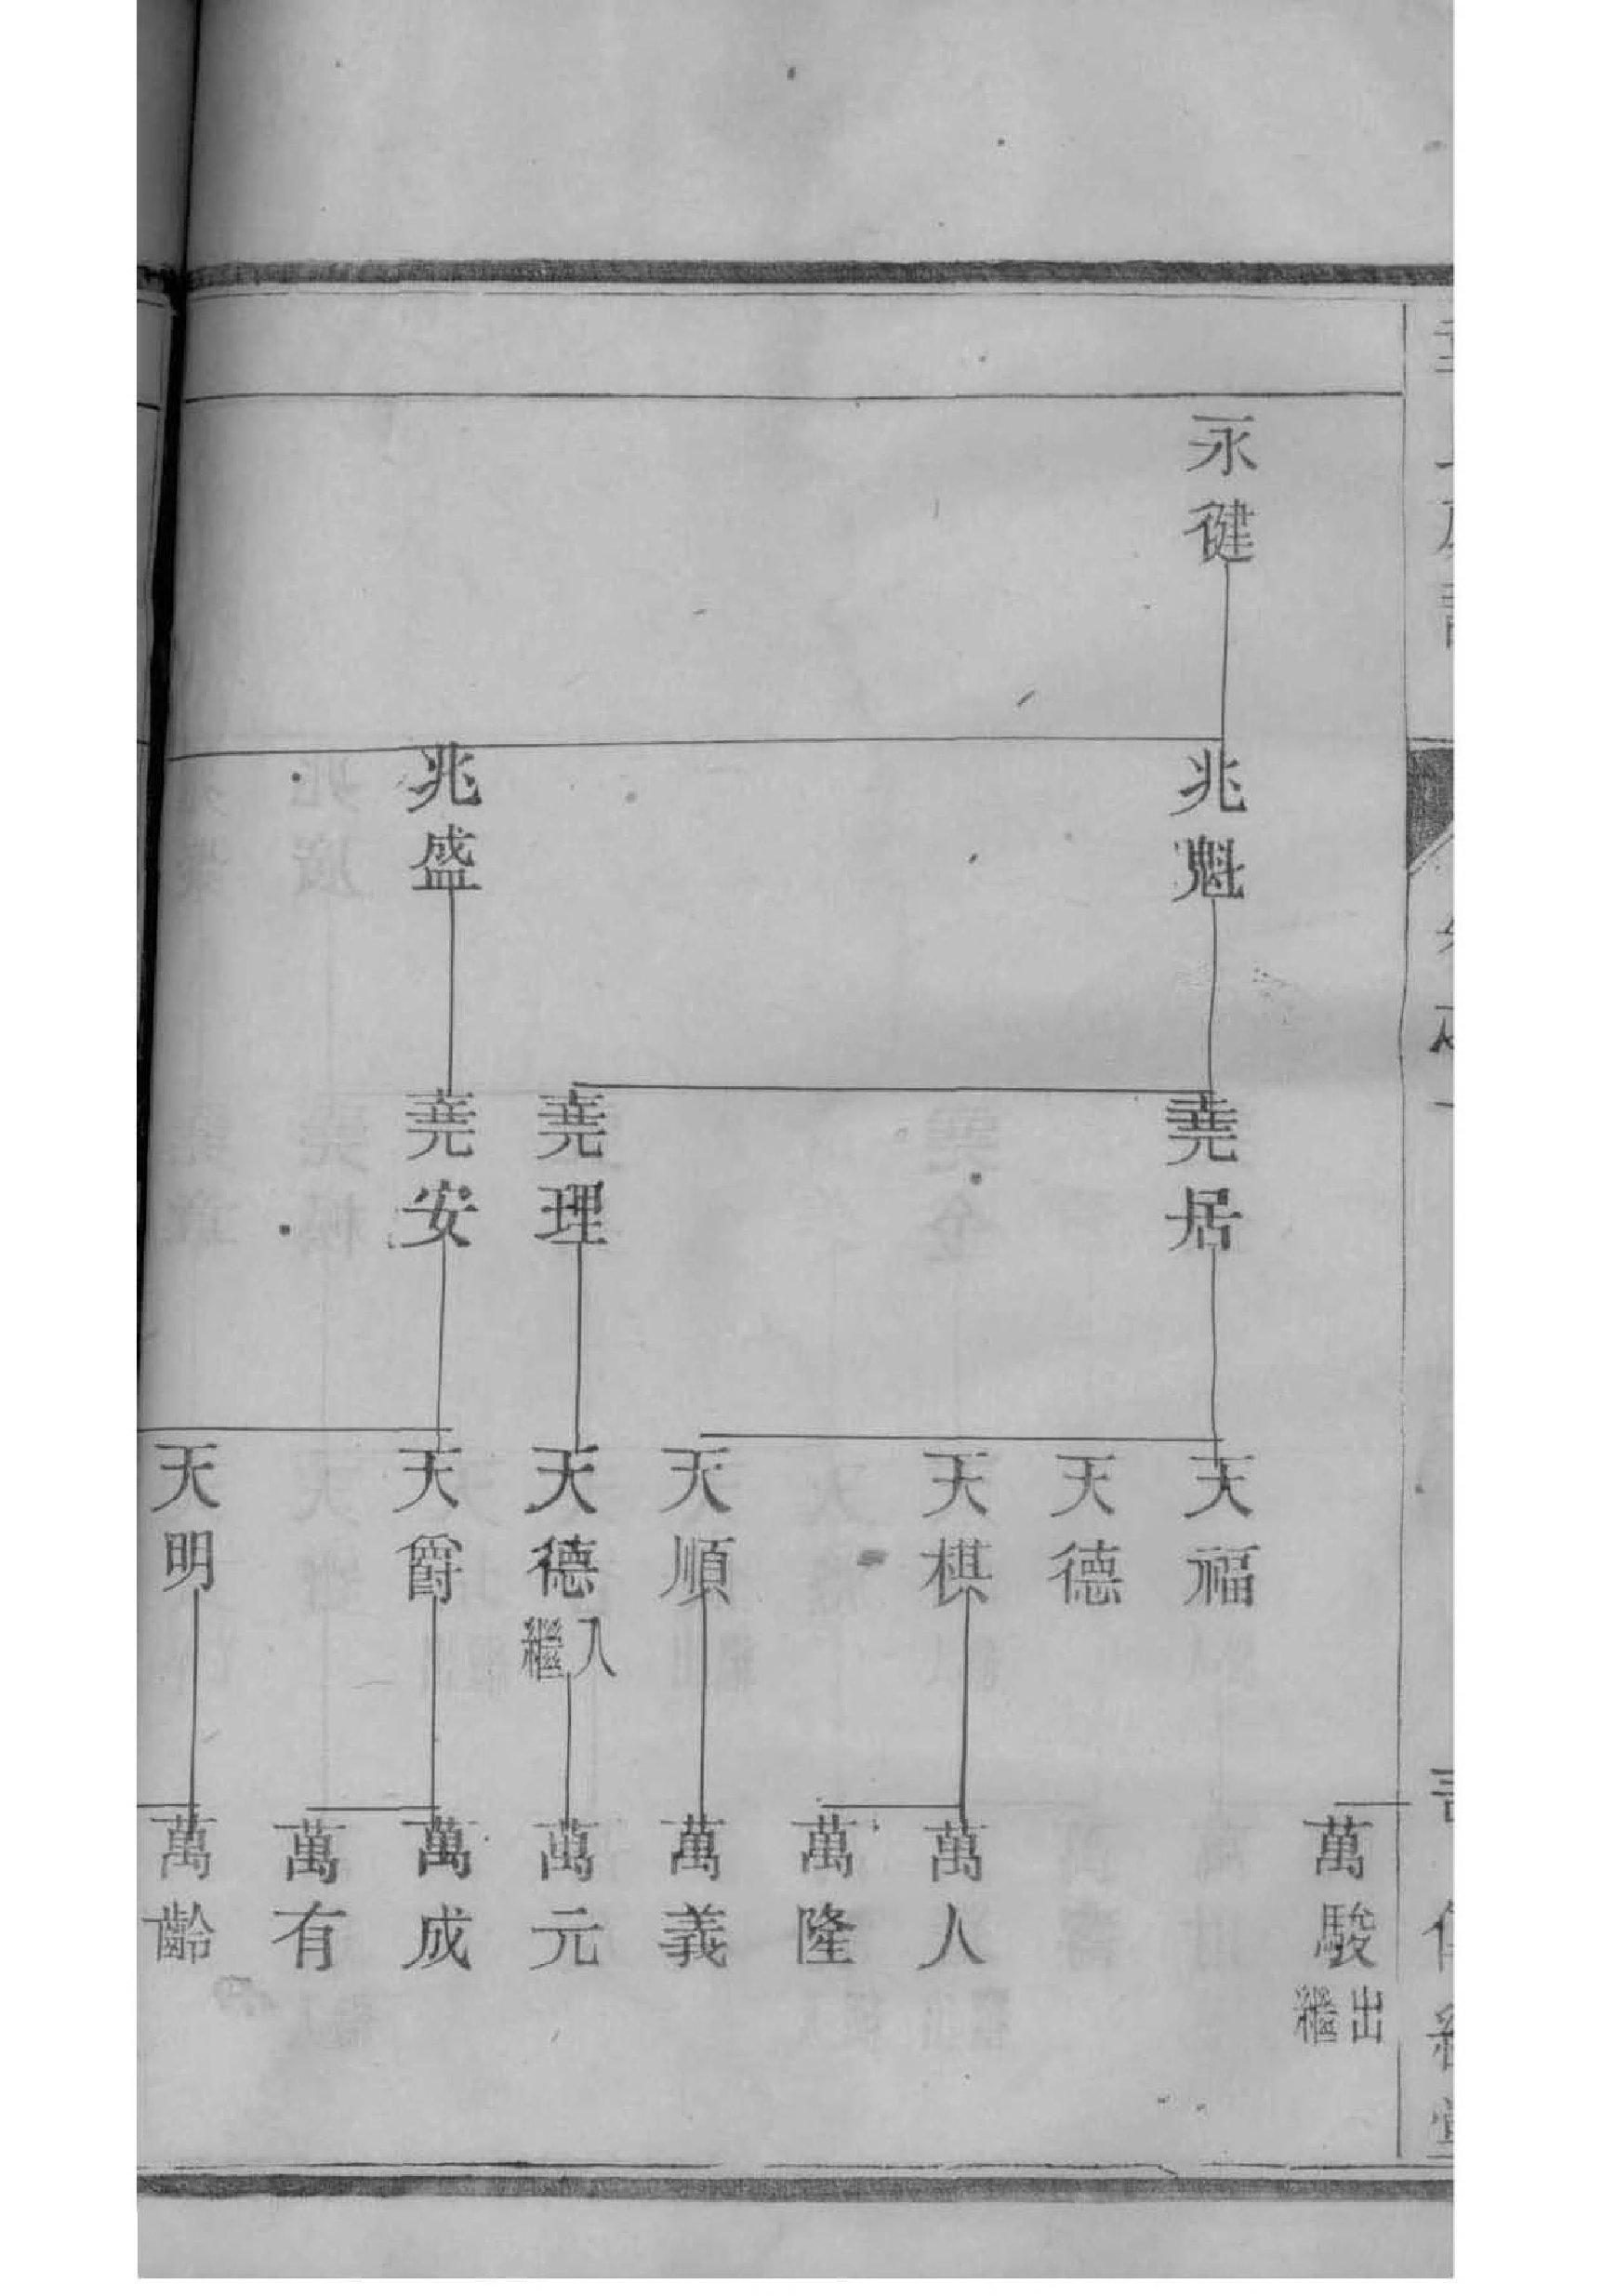 永健
兆魁
兆盛
堯居
堯理
堯安
天福
天德
天棋
天順
天德
入繼
天爵
天明
萬駿
出繼
萬人
萬隆
萬義
萬元
萬成
萬有
萬齡